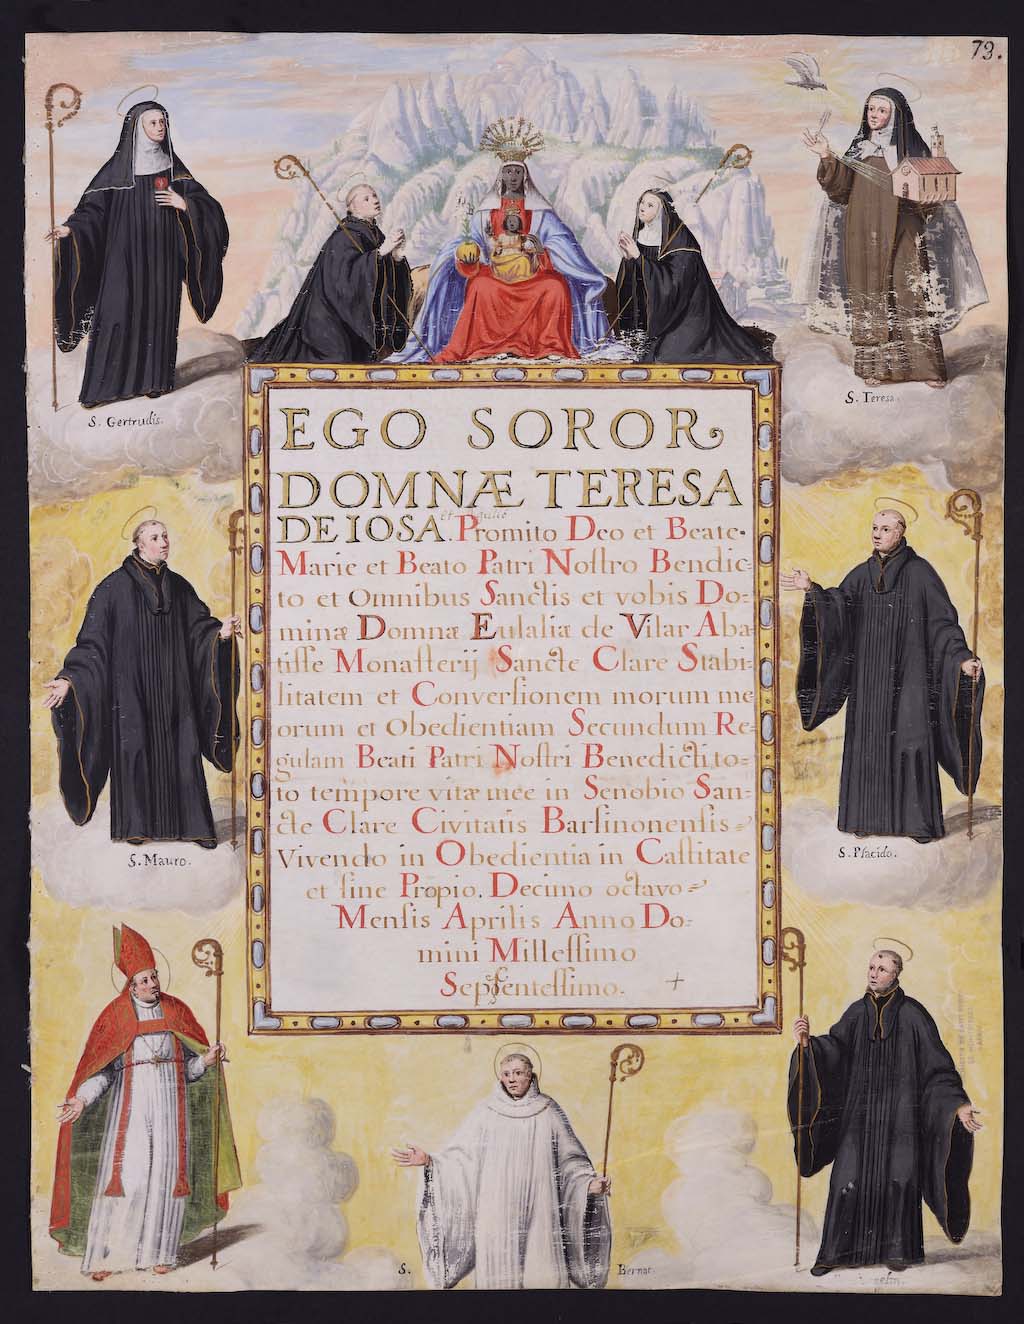 73.
S. Gertrudis.
S. Teresa.
EGO SOROR
DOMNÆ TERESA
DE IOSA. Promito Deo et Beate
Marie et Beato Patri Nostro Bendic=
to et Omnibus Sanctis et vobis Do=
minæ Domnæ Eulaliæ de Vilar Aba=
tisse Monasterij Sancte Clare Stabi=
litatem et Conversionem morum me
orum et Obedientiam Secundum Re=
gulam Beati Patri Nostri Benedicti to=
to tempore vitæ mee in Senobio San=
cte Clare Civitatis Barsinonensis
Vivendo in Obedientia in Castitate
et sine Propio. Decimo octavo
Mensis Aprilis Anno Do=
mini Millessimo
Septentessimo. +
S. Mauro.
S. Placido.
S. Bernat.